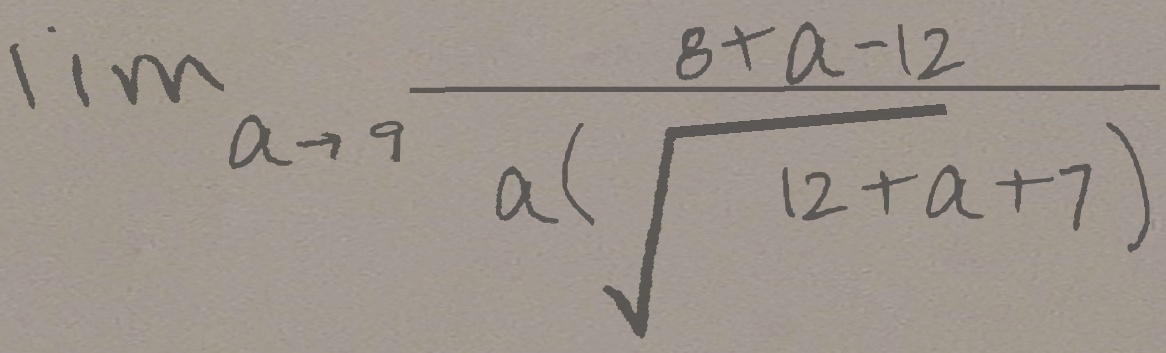 \lim_{a \to 9} \frac{8+a-12}{a(\sqrt{12+a}+7)}